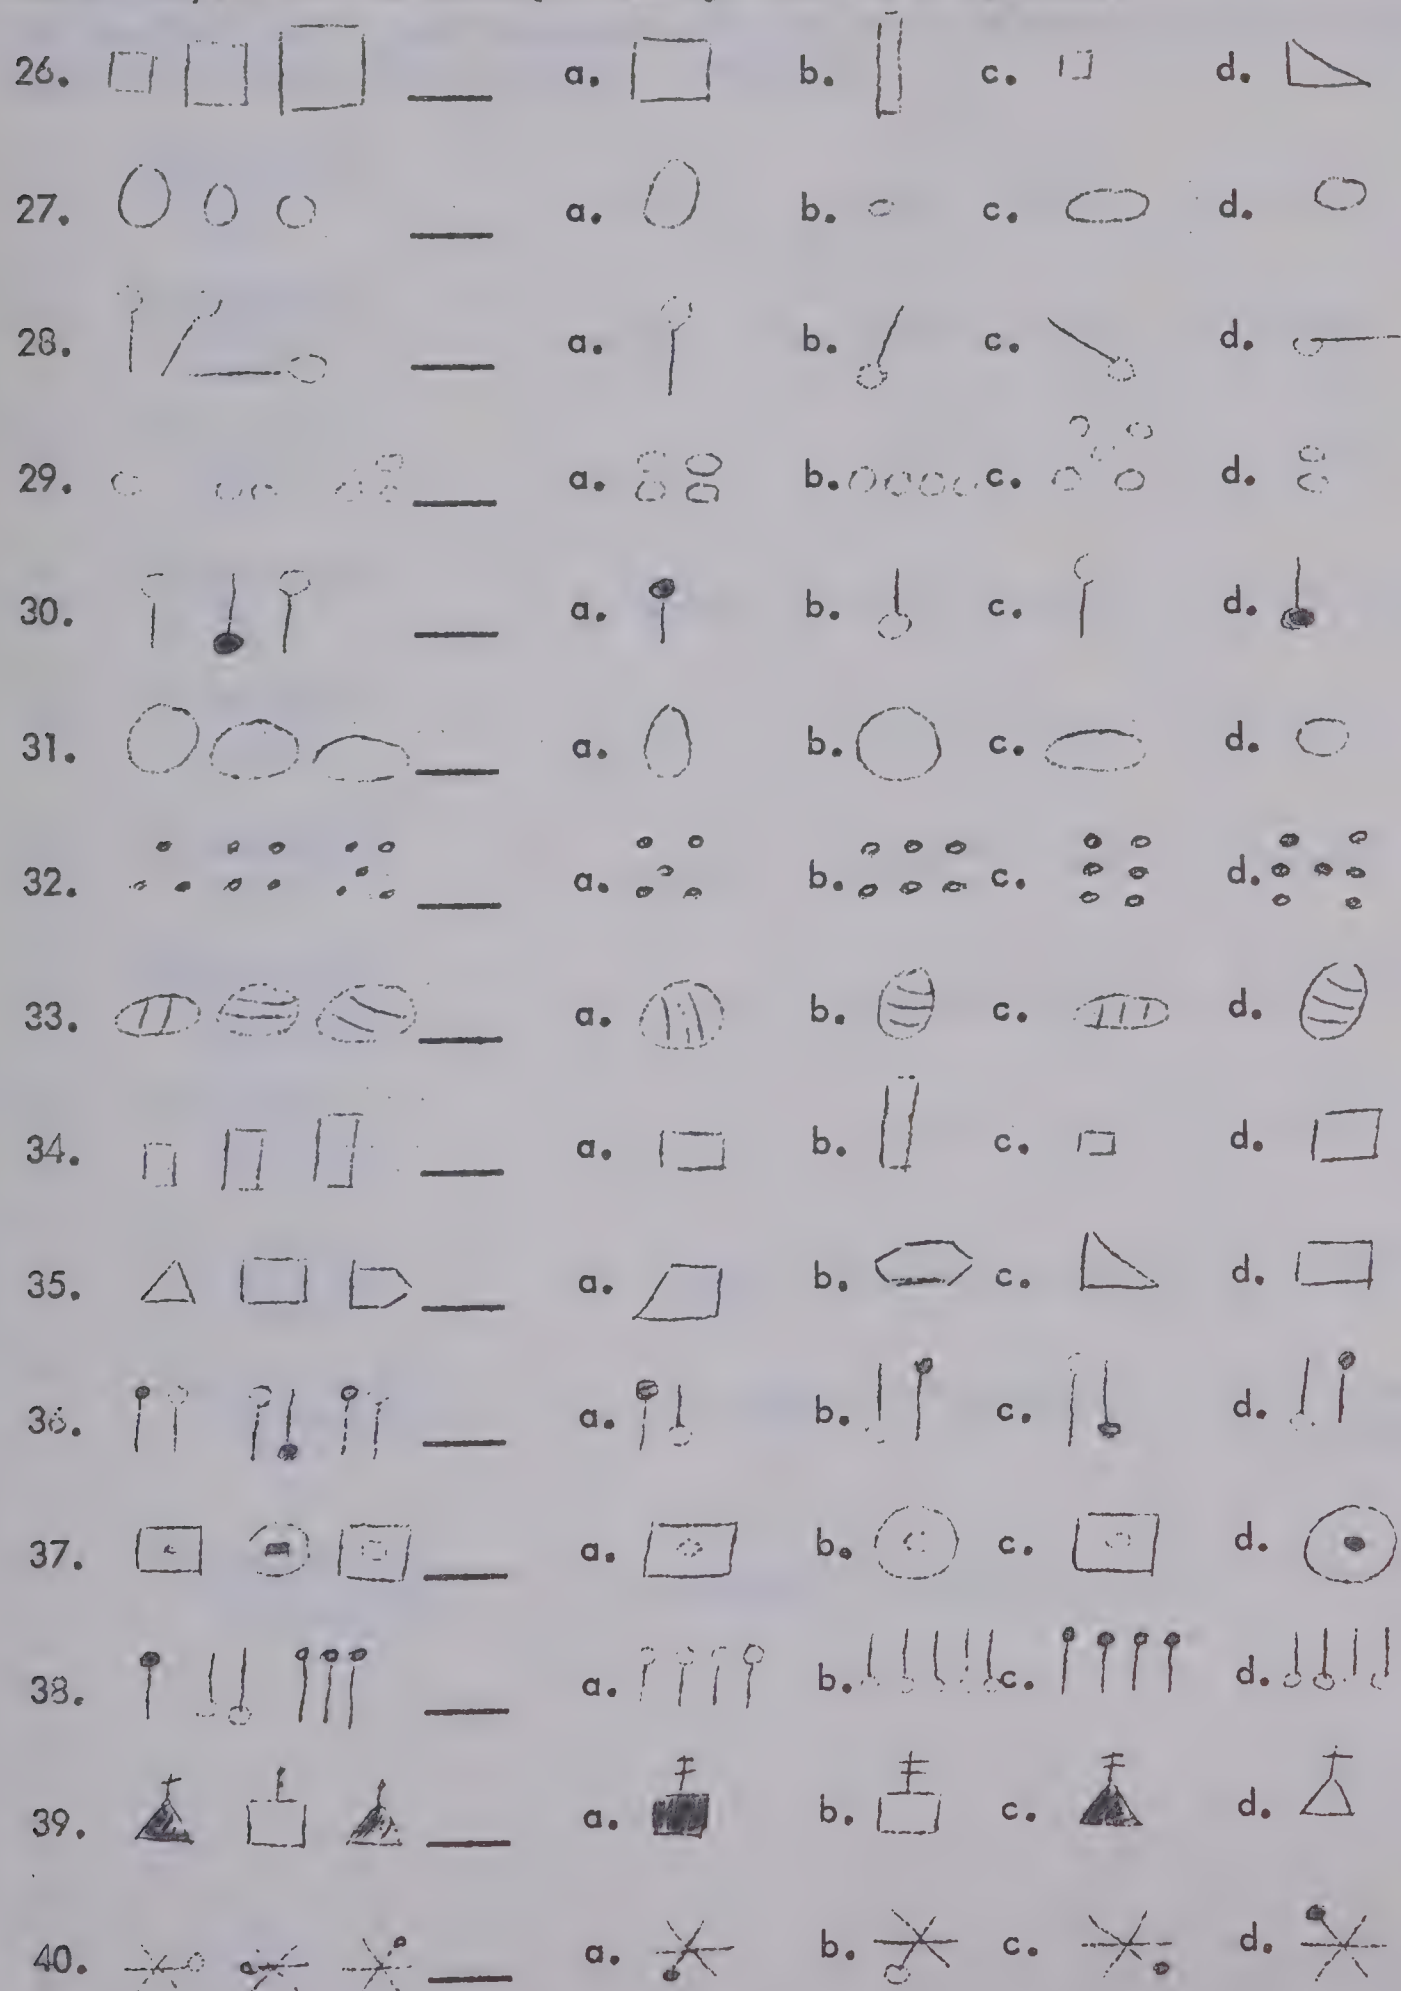 26. a. b. c. d.
27. a. b. c. d.
28. a. b. c. d.
29. a. b. c. d.
30. a. b. c. d.
31. a. b. c. d.
32. a. b. c. d.
33. a. b. c. d.
34. a. b. c. d.
35. a. b. c. d.
36. a. b. c. d.
37. a. b. c. d.
38. a. b. c. d.
39. a. b. c. d.
40. a. b. c. d.